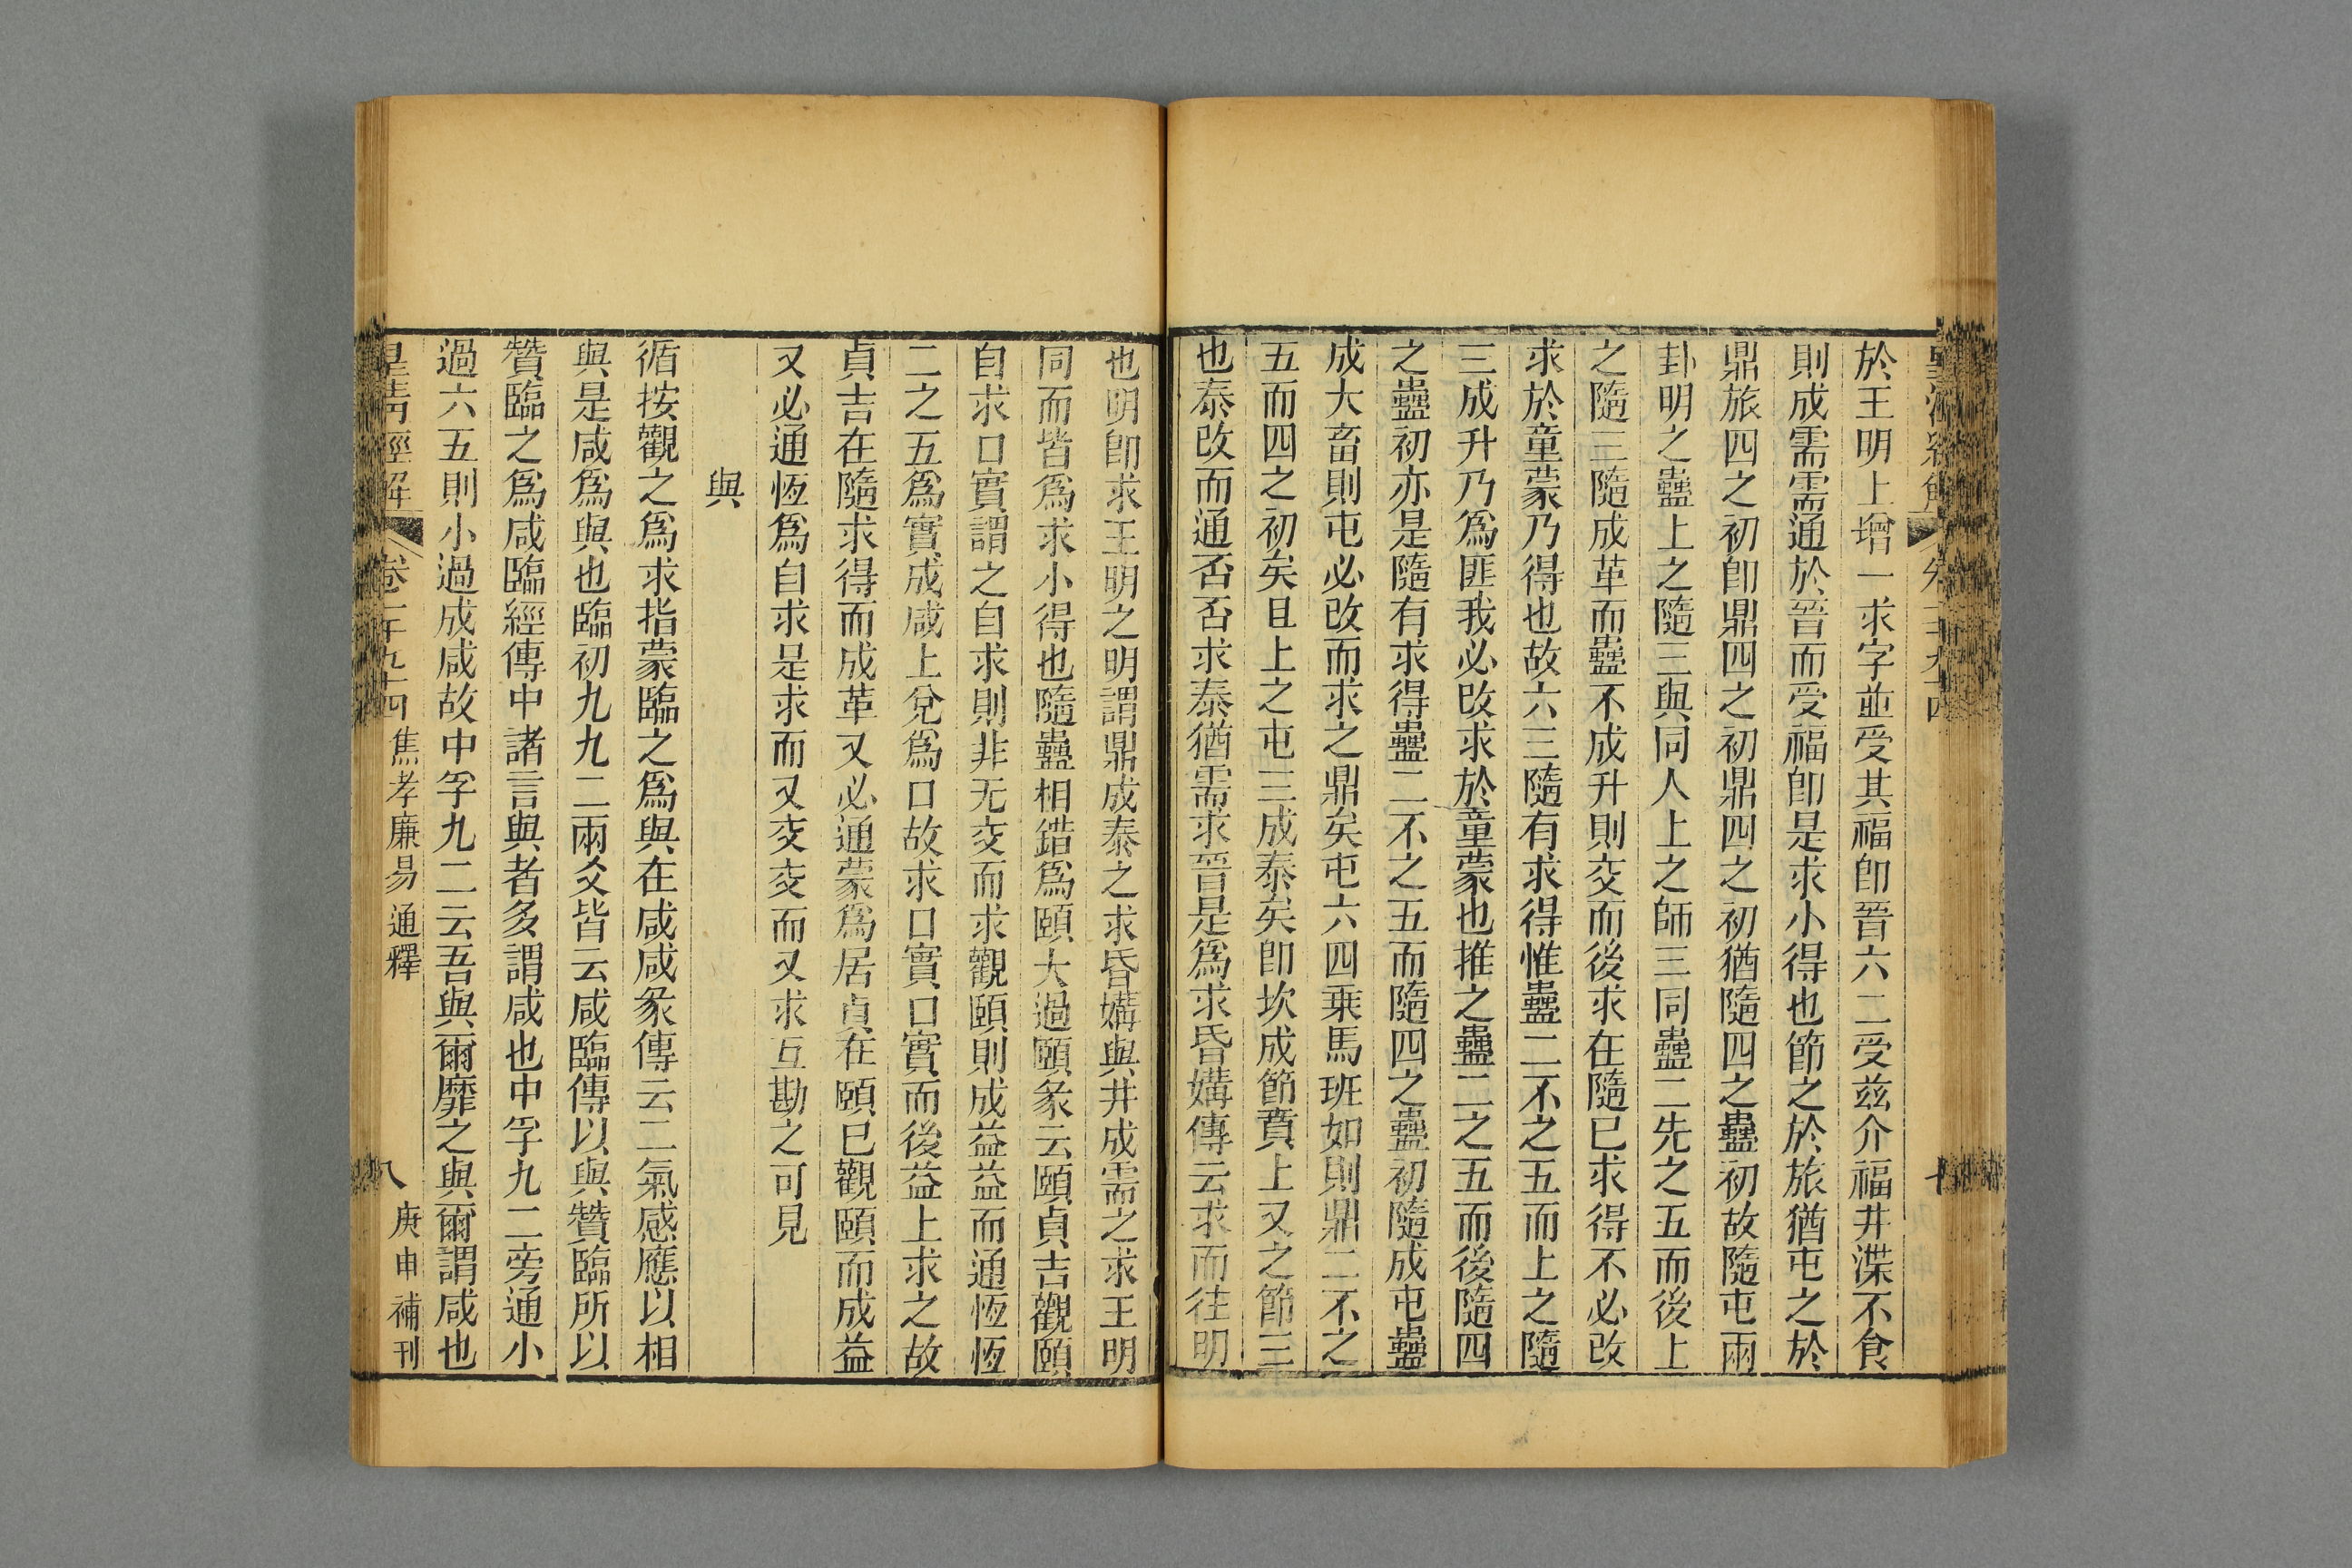 於王明上增一求字並受其福卽晉六二受茲介福井渫不食
則成需需通於晉而受福卽是求小得也節之於旅猶屯之於
鼎旅四之初卽鼎四之初鼎四之初猶隨四之蠱初故隨屯兩
卦明之蠱上之隨三與同人上之師三同蠱二先之五而後上
之隨三隨成革而蠱不成升則交而後求在隨已求得不必改
求於童蒙乃得也故六三隨有求得惟蠱二不之五而上之隨
三成升乃爲匪我必改求於童蒙也推之蠱二之五而後隨四
之蠱初亦是隨有求得蠱二不之五而隨四之蠱初隨成屯蠱
成大畜則屯必改而求之鼎矣屯六四乘馬班如則鼎二不之
五而四之初矣且上之屯三成泰矣卽坎成節賁上又之節三
也泰改而通否否求泰猶需求晉是爲求昏媾傳云求而往明
也明卽求王明之明謂鼎成泰之求昏媾與井成需之求王明
同而皆爲求小得也隨蠱相錯爲頤大過頤彖云頤貞吉觀頤
自求口實謂之自求則非无交而求觀頤則成益益而通恆恆
二之五爲實成咸上兌爲口故求口實口實而後益上求之故
貞吉在隨求得而成革又必通蒙爲居貞在頤已觀頤而成益
又必通恆爲自求是求而又交交而又求互勘之可見
與
循按觀之爲求指蒙臨之爲與在咸咸彖傳云二氣感應以相
與是咸爲與也臨初九九二兩爻皆云咸臨傳以與贊臨所以
贊臨之爲咸臨經傳中諸言與者多謂咸也中孚九二旁通小
過六五則小過成咸故中孚九二云吾與爾靡之與爾謂咸也
皇清經解 卷一千九十四 焦孝廉易通釋 八 庚申補刊